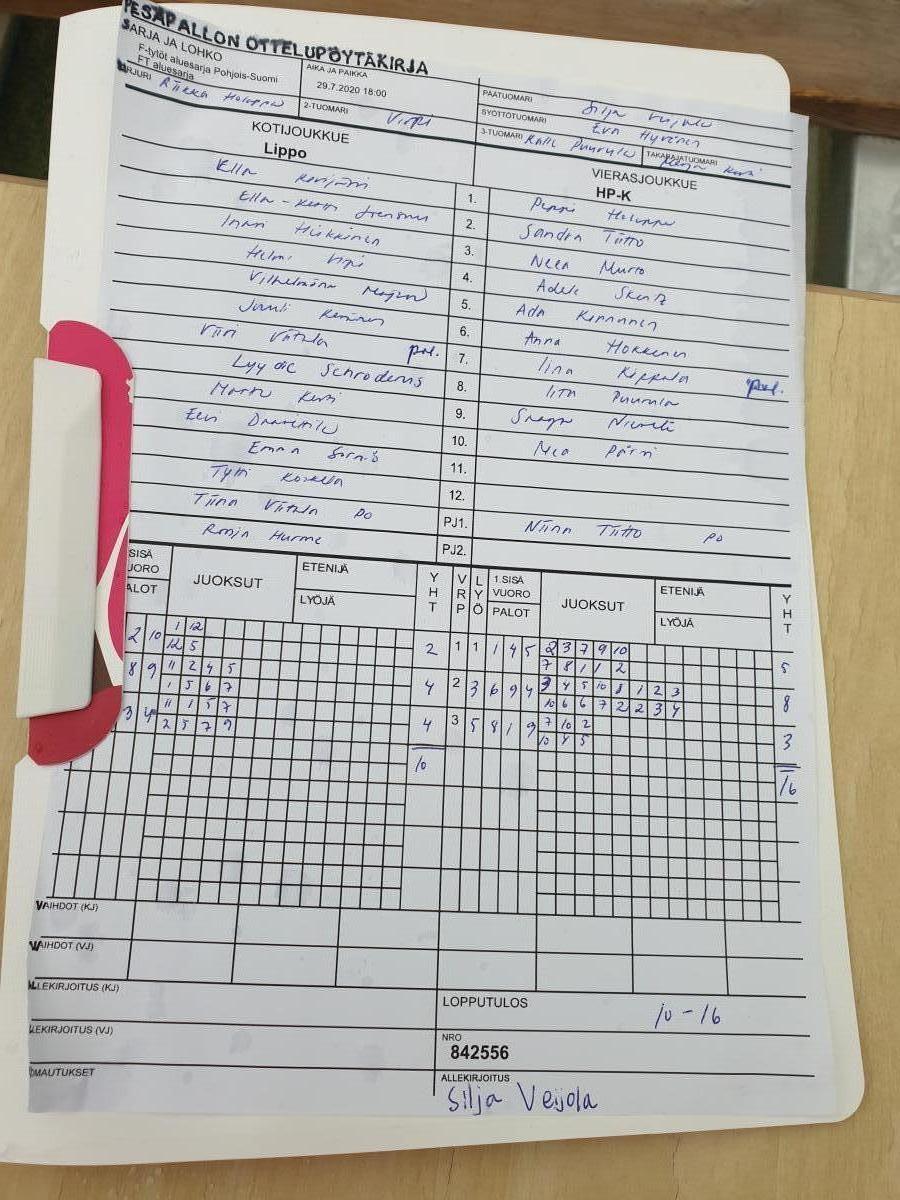 PESÄPALLON OTTELUPÖYTÄKIRJA
SARJA JA LOHKO
F-tytöt aluesarja Pohjois-Suomi
FT aluesarja
AIKA JA PAIKKA
29.7.2020 18:00
PÄÄTUOMARI Silja
SYÖTTÖTUOMARI Eva Hyvönen
KIRJURI Riikka Holappa
2-TUOMARI
3-TUOMARI Puurula
TAKARAJATUOMARI
KOTIJOUKKUE
Lippo
VIERASJOUKKUE
HP-K
Ella 1. Peppi Holappa
2. Sandra Tiitto
Inari Hiekkinen 3. Neea Murto
Helmi 4. Adele
Vilhelmiina 5. Ada
Juuli 6. Anna
Viivi Viitala 7. Iina
Schroderus 8. Iita Puurula
9.
Eevi 10.
Emma 11.
Tytti Koskela 12.
Tiina Viitala PO PJ1. Niina Tiitto PO
Ronja Hurme PJ2.
SISÄ VUORO
PALOT
JUOKSUT
ETENIJÄ
LYÖJÄ
YHT
VRP
LYÖ
1.SISÄ VUORO
PALOT
JUOKSUT
ETENIJÄ
LYÖJÄ
YHT
2 10 1 12 2 1 1 1 4 5 2 3 7 9 10 5
12 5 7 8 1 1 2
8 9 11 2 4 5 4 2 3 6 9 4 3 4 5 10 8 1 2 3 8
1 5 6 7 10 6 6 7 2 2 3 4
3 4 11 1 5 7 4 3 5 8 1 9 7 10 2 3
2 5 7 9 10 4 5
10 16
VAIHDOT (KJ)
VAIHDOT (VJ)
ALLEKIRJOITUS (KJ)
LOPPUTULOS 10 - 16
ALLEKIRJOITUS (VJ)
NRO
842556
HUOMAUTUKSET
ALLEKIRJOITUS
Silja Veijola